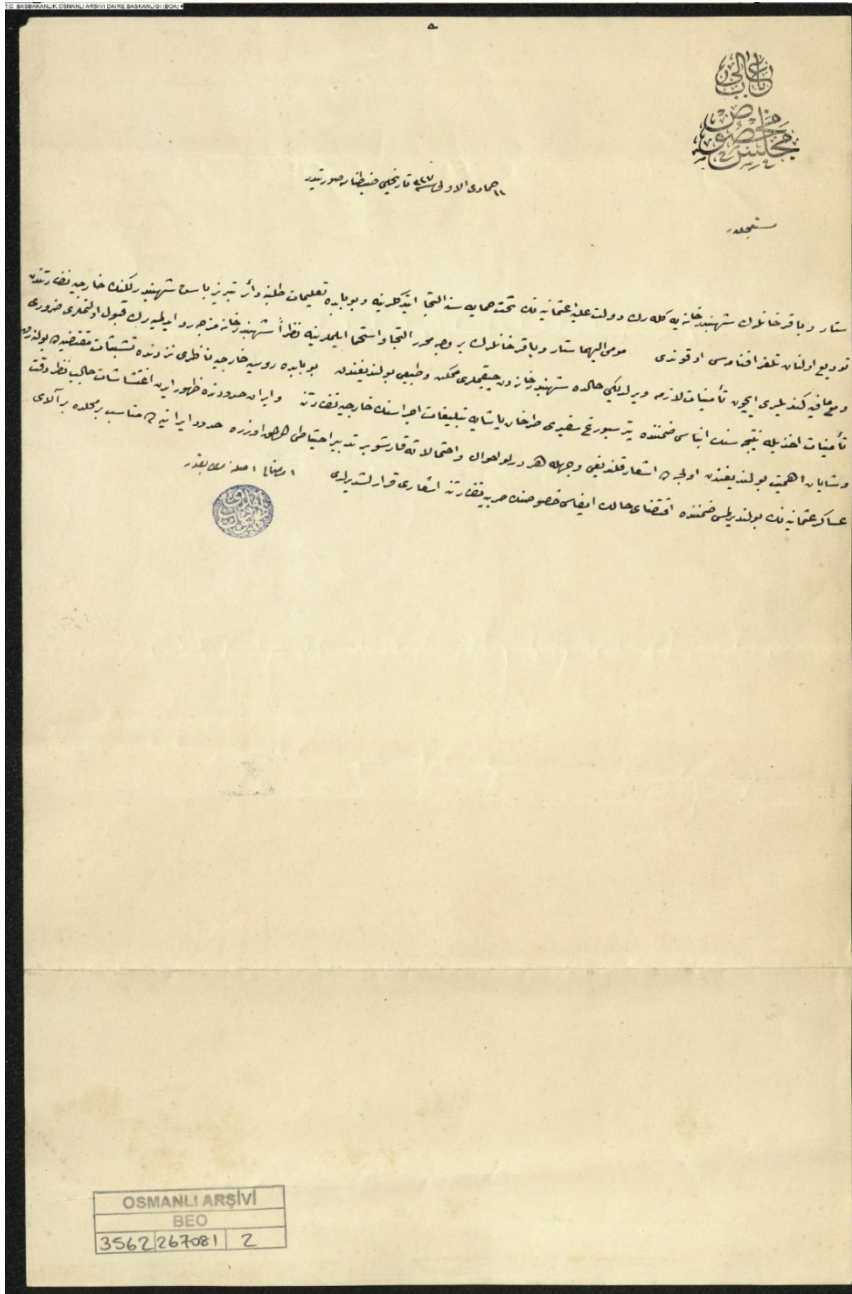 T.C. BAŞBAKANLIK OSMANLI ARŞİVİ DAİRE BAŞKANLIĞI (BOA)
باب عالی
مجلس مخصوص
١١ جمادی الاولی سنه ٣٢٧ تاریخلی ضبطنامه صورتیدر
مستعجلدر
ستار و باقر خانلرك شهبندرخانه یه كله رك دولت علیهٔ عثمانیه نك تحت حمایه سنه التجا ایتدكلرینه و بو بابده تعلیمات طلبنه دائر تبریز باش شهبندرلكندن خارجیه نظارتندن
تودیع اولنان تلغرافنامه سی اوقوندی مومی الیهما ستار و باقر خانلرك بر وجه محرر التجا و استحما ایلملرینه نظراً شهبندرخانه مزجه رد ایدلمیه رك قبول اولنملری ضروری
و مع مافیه كندیلری ایچون تأمینات لازمه ویرلدیكی حالده شهبندرخانه دن چیقملری ممكن و طبیعی بولندیغندن بو بابده روسیه خارجیه ناظری نزدنده تشبثات مقتضیه ده بولنه رق
تأمینات اخذیله نتیجه سنك انباسی ضمننده پترسبورغ سفیری طرخان پاشایه تبلیغات اجراسنك خارجیه نظارتنه و ایران حدودنده ظهور ایدن اغتشاشات جالب نظر دقت
و شایان اهمیت بولندیغندن اولجه ده اشعار قلندیغی وجهله هر درلو احوال و احتمالاته قارشو بر تدبیر احتیاطی اولمق اوزره حدود ایرانیه ده مناسب بر محلده بر آلای
عساكر عثمانیه نك بولندیرلمسی ضمننده اقتضای حالك ایفاسی خصوصنك حربیه نظارتنه اشعاری قرارلشدیرلدی
اصلنه مطابقدر
OSMANLI ARŞİVİ
BEO
3562 267081 2